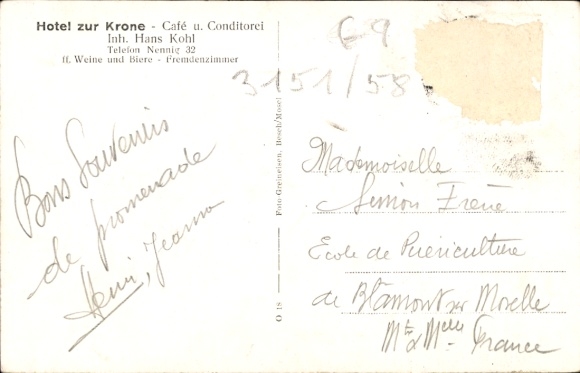 Hotel zur Krone - Café u. Conditorei
Inh. Hans Kohl
Telefon Nennig 32
ff. Weine und Biere - Fremdenzimmer
69
3151/58
Bons Souvenirs
de promenade
Henri, Jeanne
Foto Greinelsen, Besch/Mosel
O 18
Mademoiselle
Simon Irène
École de Puériculture
de Blamont sur Moselle
Mthe & Mlle
France